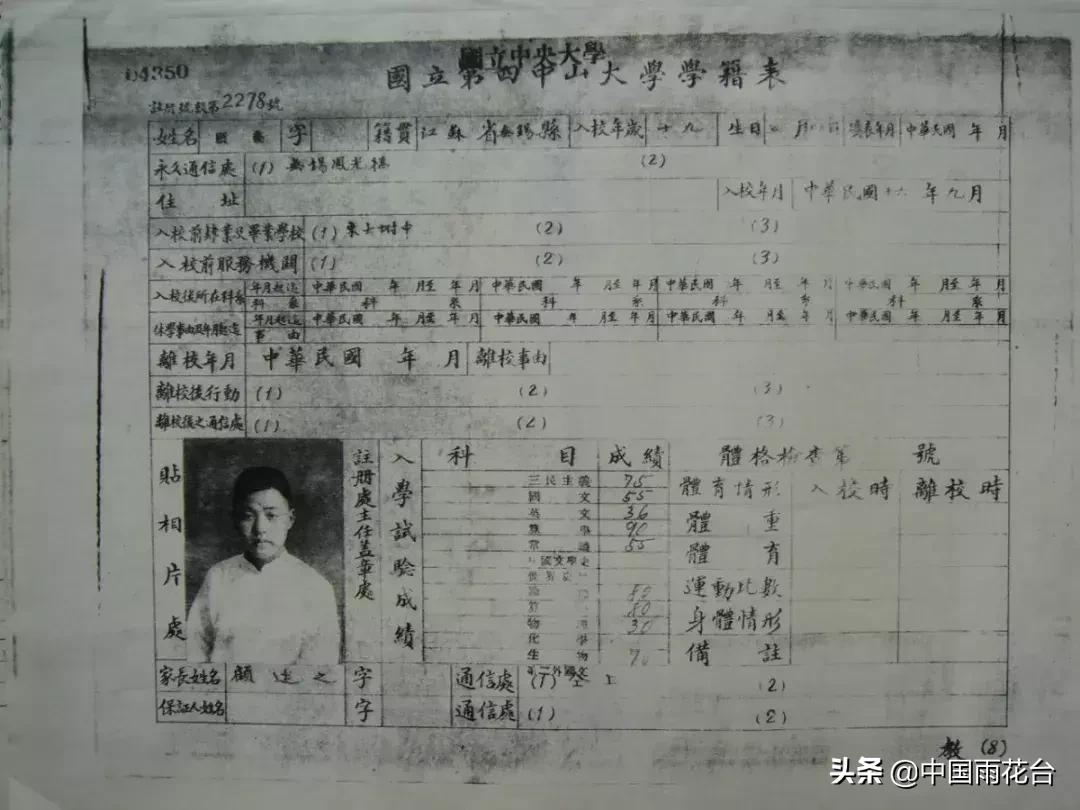 國立中央大學
04350
國立第四中山大學學籍表
註冊號數第2278號
姓名 字 籍貫 江蘇省無錫縣 入校年歲 十九 生日 月 日 填表年月 中華民國 年 月
永久通信處 (1) 無錫鳳光橋 (2)
住址 入校年月 中華民國十六年九月
入校前肄業及畢業學校 (1) 東大附中 (2) (3)
入校前服務機關 (1) (2) (3)
入校後所在科系 年月起迄 中華民國 年 月至 年 月 中華民國 年 月至 年 月 中華民國 年 月至 年 月 中華民國 年 月至 年 月
科系 科 系 科 系 科 系 科 系
休學事由及年月起迄 年月起迄 中華民國 年 月至 年 月 中華民國 年 月至 年 月 中華民國 年 月至 年 月 中華民國 年 月至 年 月
事由
離校年月 中華民國 年 月 離校事由
離校後行動 (1) (2) (3)
離校後之通信處 (1) (2) (3)
貼相片處
註冊處主任蓋章處
入學試驗成績
科目 成績 體格檢查第 號
三民主義 75 體育情形 入校時 離校時
國文 55
英文 36 體重
數學 90
常識 55 體育
中國文學史
世界史
80 運動比數
80
物理 30 身體情形
化學
生物 70 備註
第二外國文
家長姓名 顧述之 字 通信處 (1) (2)
保証人姓名 字 通信處 (1) (2)
教 (8)
头条 @中国雨花台